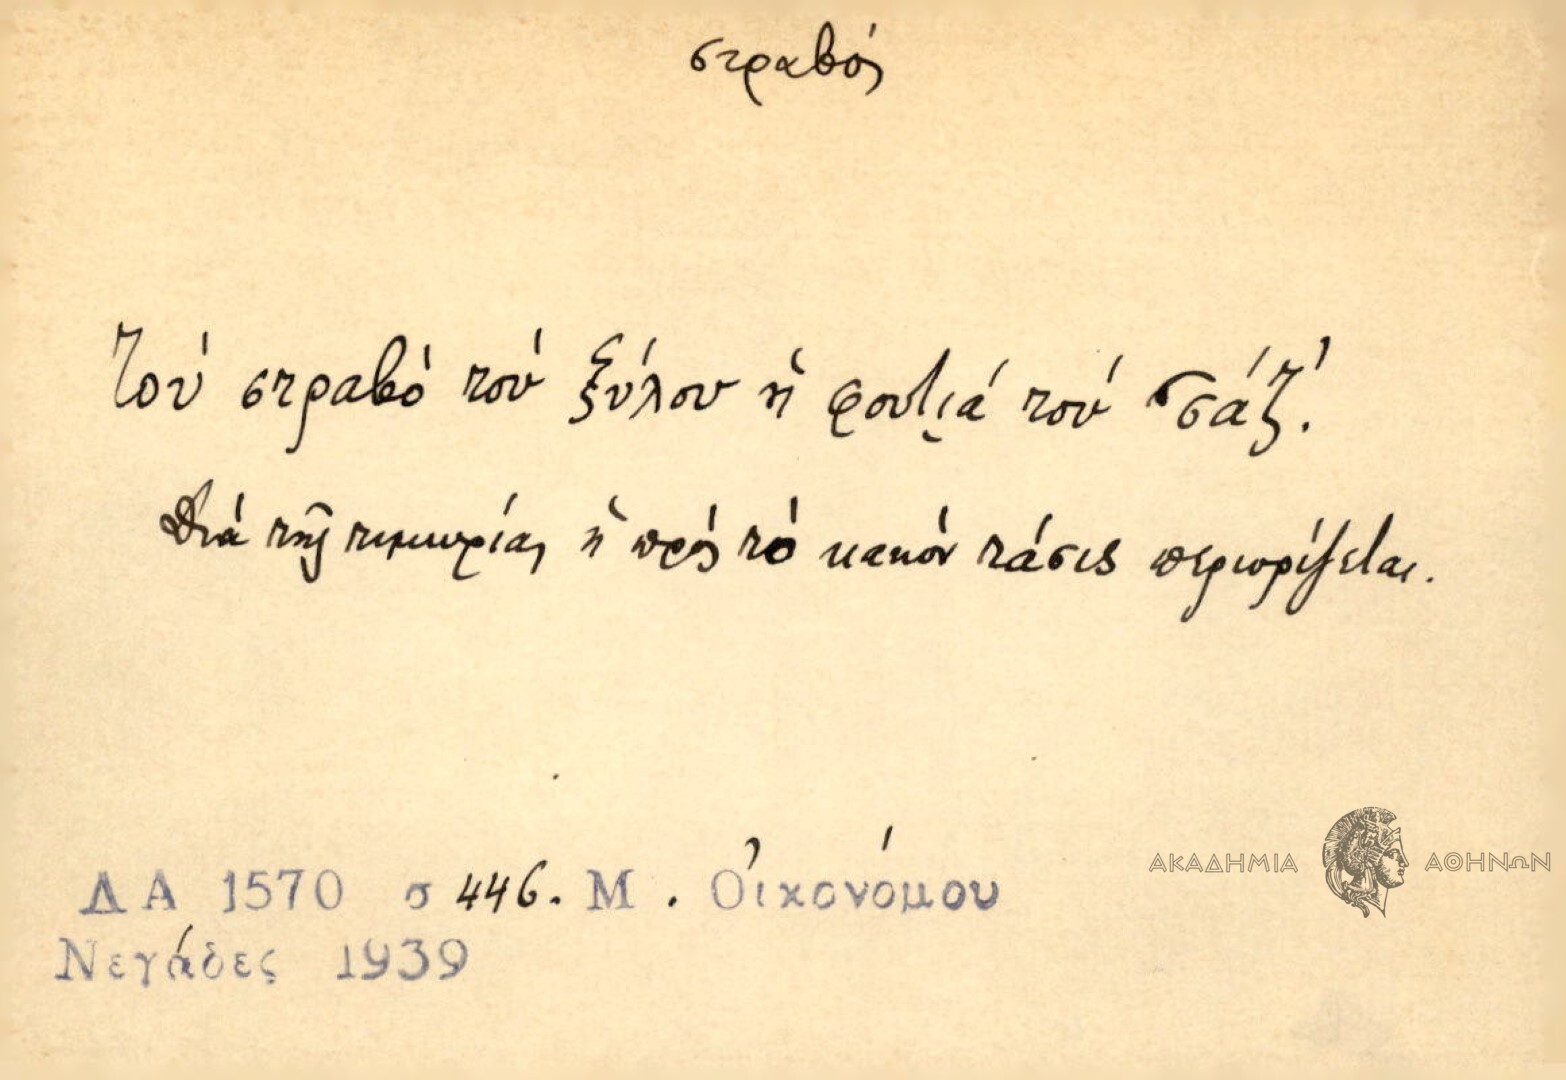 στραβός
Τού στραβό τού ξύλου ἡ φουτιά τού σάζ'.
Διά τῆς τιμωρίας ἡ πρός τό κακόν τάσις περιορίζεται.
ΔΑ 1570 σ 446. Μ. Οἰκονόμου
Νεγάδες 1939
ΑΚΑΔΗΜΙΑ ΑΘΗΝΩΝ